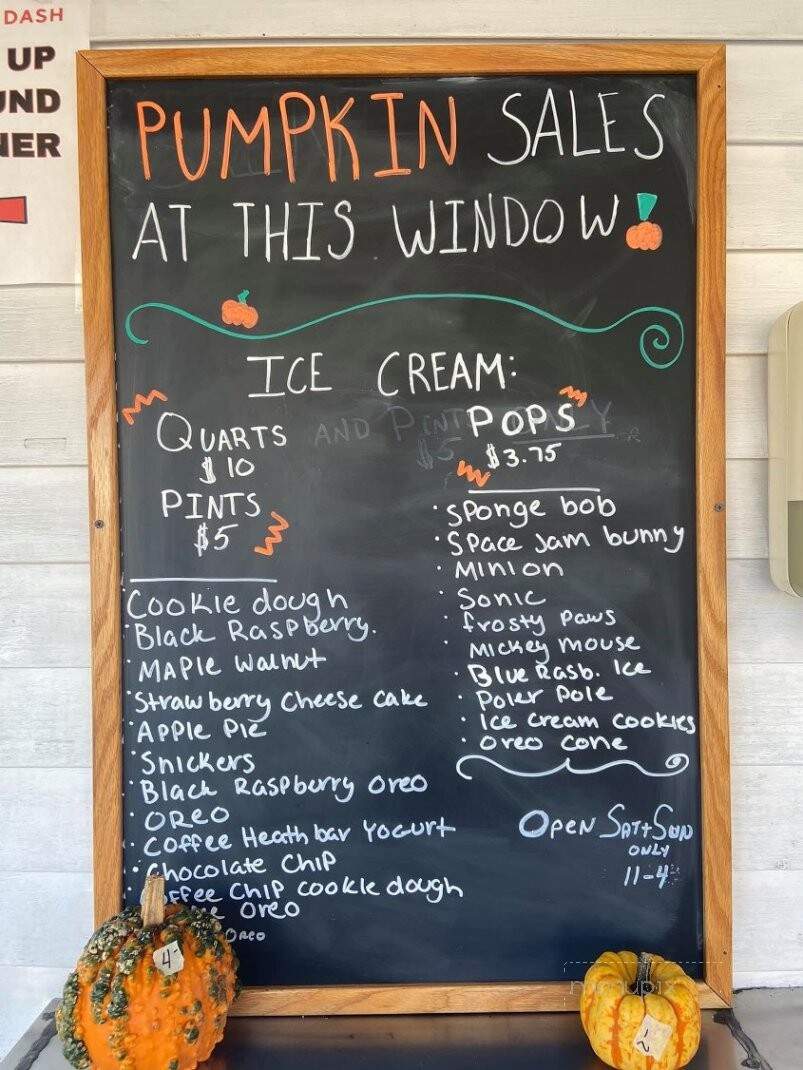 DASH
UP
UND
NER
PUMPKIN SALES
AT THIS WINDOW!
ICE CREAM:
QUARTS
$10
PINTS
$5
AND PINTS
$5
POPS
$3.75
Cookie dough
Black Raspberry.
MAPle Walnut
Strawberry Cheese Cake
APPle Pie
Snickers
Black Raspberry Oreo
OREO
Coffee Heath bar Yogurt
Chocolate Chip
offee Chip cookie dough
Oreo
OREO
Sponge bob
Space Jam bunny
Minion
Sonic
frosty Paws
Mickey Mouse
Blue Rasb. Ice
Poler Pole
Ice Cream Cookies
Oreo Cone
OPEN SAT+SUN
ONLY
11-4
4-
2-
menupix